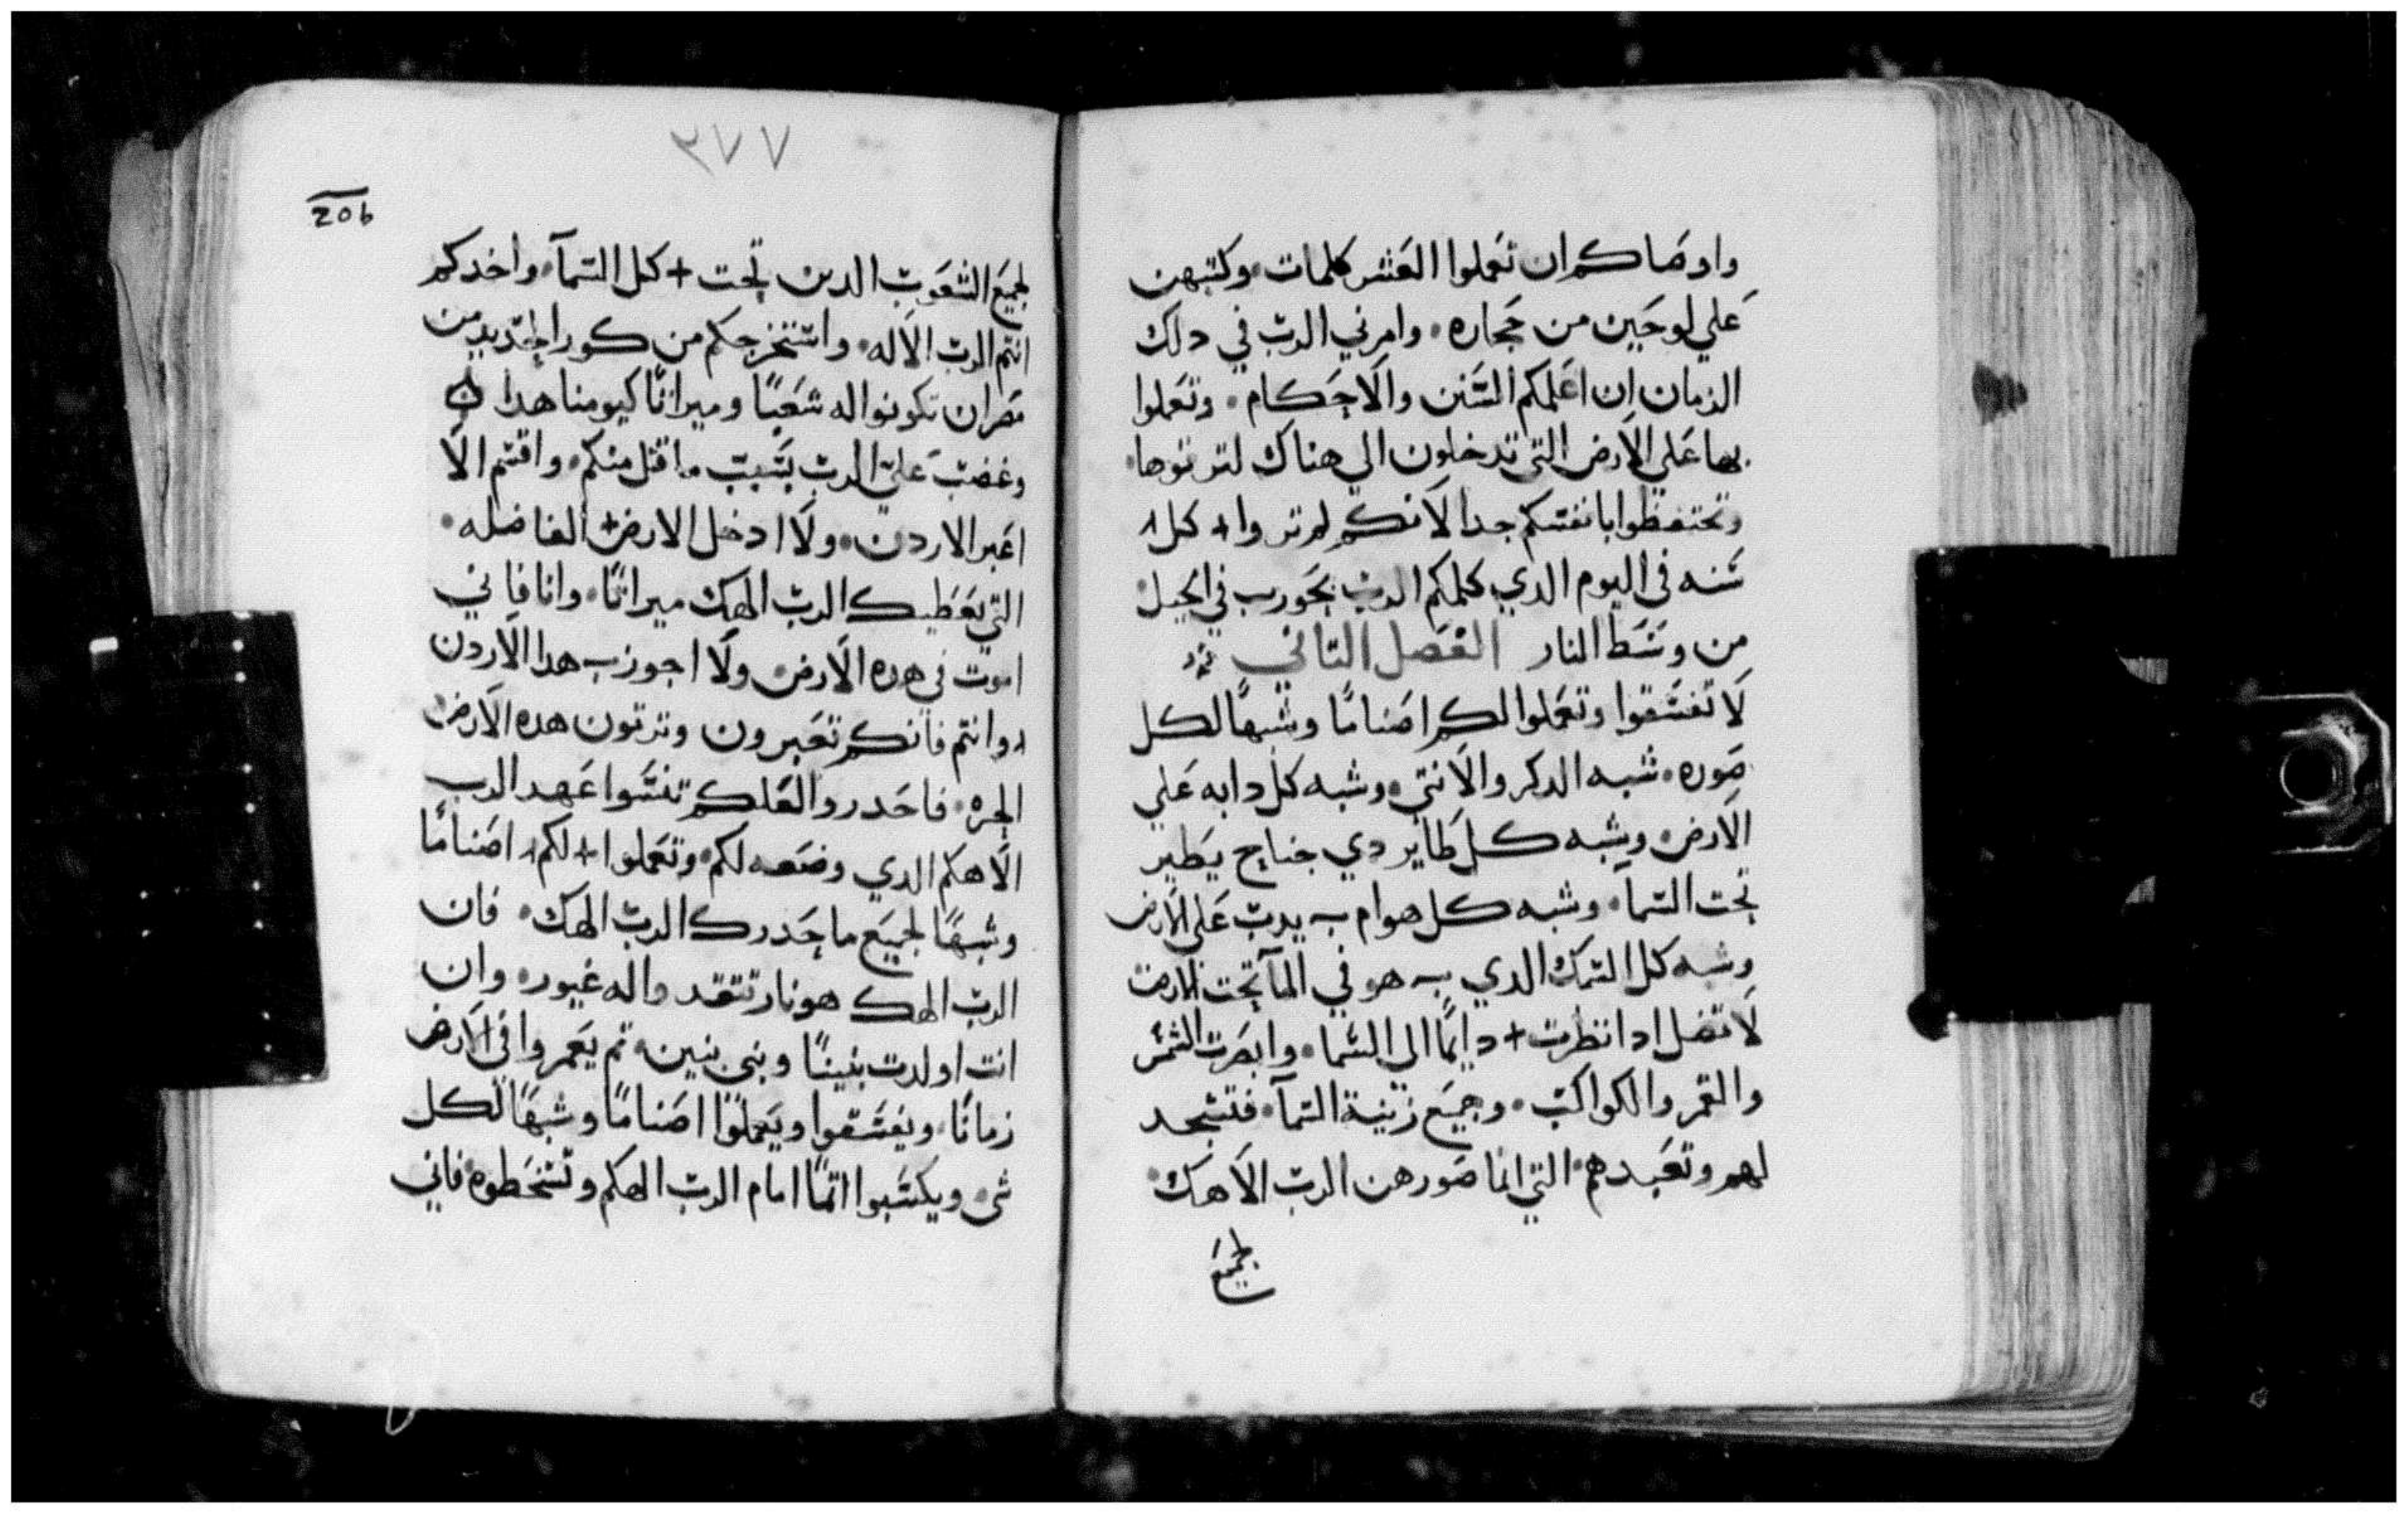 واوصاكم ان تعملوا العشر كلمات وكتبهن
علي لوحين من حجاره وامرني الرب في دلك
الزمان ان اعلمكم السنن والاحكام وتعملوا
بها علي الارض التي تدخلون الي هناك لترتوها
وتحتفظوا بانفسكم جدا لانكم لم تروا + كل
سنه في اليوم الدي كلمكم الرب بحوريب في الجبل
من وسط النار الفصل التاني
لا تفسقوا وتعملوا لكم اصناما وشبها لكل
صوره شبه الدكر والانتي وشبه كل دابه علي
الارض وشبه كل طاير دي جناح يطير
تحت السمآ وشبه كل هوام يدب علي الارض
وشبه كل السمك الدي هو في المآ تحت الارض
لا تضل ادا نظرت + دايمًا الي السما وابصرت الشمس
والقمر والكواكب وجميع زينة السمآ فتسجد
لهم وتعبدهم التي انما صورهن الرب الاهك
لجميع
٣٧٧
206
لجميع الشعوب الدين تحت + كل السمآ واخدكم
انتم الرب الاله واستخرجكم من كور الحديد من
مصر ان تكونوا له شعبًا وميراتًا كيومنا هدا
وغضب علي الرب بسبب ما قتل منكم واقسم الا
اعبر الاردن ولا ادخل الارض + الفاضله
التي يعطيك الرب الهك ميراتًا وانا فاني
اموت في هده الارض ولا اجوز هدا الاردن
وانتم فانكم تعبرون وترتون هده الارض
الجره فاحدروا لعلكم تنسوا عهد الرب
الاهكم الدي وضعه لكم وتعملوا + لكم اصنامًا
وشبهًا لجميع ما حدرك الرب الهك فان
الرب الهك هو نار تتقد واله غيور وان
انت اولدت بنينًا وبني بنين تم يعمروا في الارض
زمانًا ويفسقوا ويعملوا اصنامًا وشبهًا لكل
شي ويكسبوا اتمًا امام الرب الهكم وتسخطوه فاني